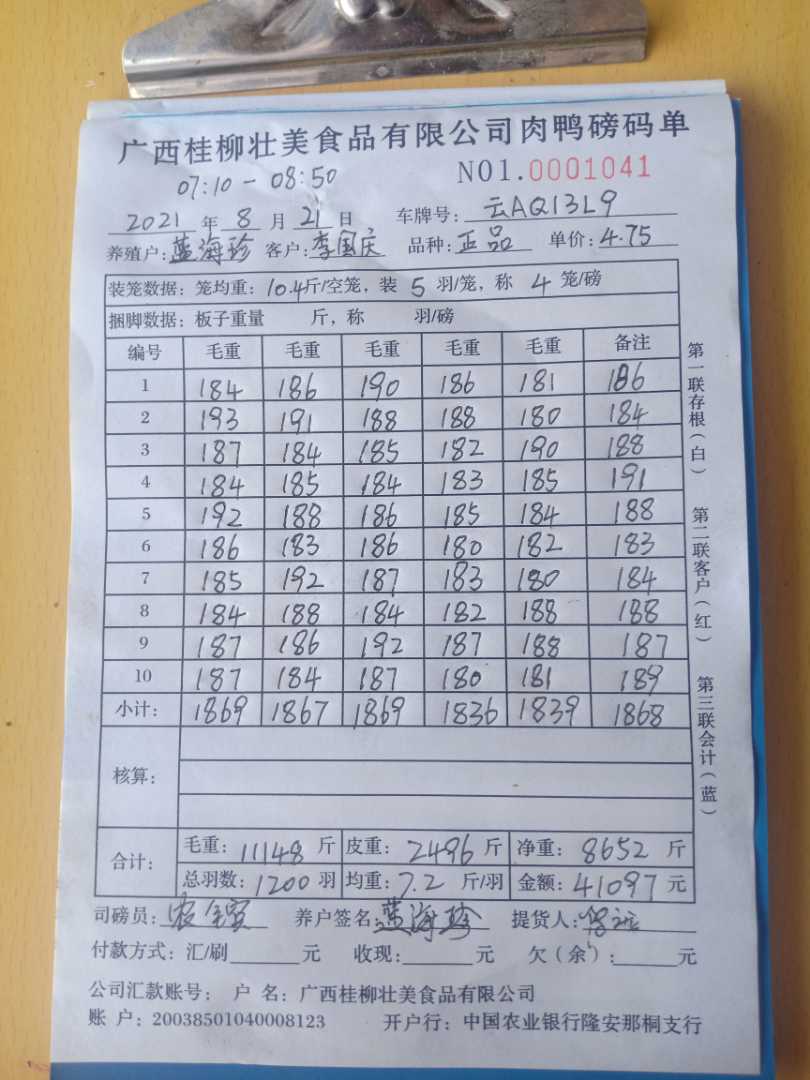 广西桂柳壮美食品有限公司肉鸭磅码单
07:10 - 08:50 NO1.0001041
2021 年 8 月 21 日 车牌号: 云AQ13L9
养殖户: 蓝海珍 客户: 李国庆 品种: 正品 单价: 4.75
装笼数据: 笼均重: 10.4斤/空笼, 装 5 羽/笼, 称 4 笼/磅
捆脚数据: 板子重量 斤, 称 羽/磅
编号 毛重 毛重 毛重 毛重 毛重 备注
1 184 186 190 186 181 186
2 193 191 188 188 180 184
3 187 184 185 182 190 188
4 184 185 184 183 185 191
5 192 188 186 185 184 188
6 186 183 186 180 182 183
7 185 192 187 183 180 184
8 184 188 184 182 188 188
9 187 186 192 187 188 187
10 187 184 187 180 181 189
小计: 1869 1867 1869 1836 1839 1868
核算:
合计: 毛重: 11148 斤 皮重: 2496 斤 净重: 8652 斤
总羽数: 1200 羽 均重: 7.2 斤/羽 金额: 41097 元
司磅员: 养户签名: 蓝海珍 提货人:
付款方式: 汇/刷 元 收现: 元 欠(余): 元
公司汇款账号: 户 名: 广西桂柳壮美食品有限公司
账 户: 20038501040008123 开户行: 中国农业银行隆安那桐支行
第一联存根(白) 第二联客户(红) 第三联会计(蓝)